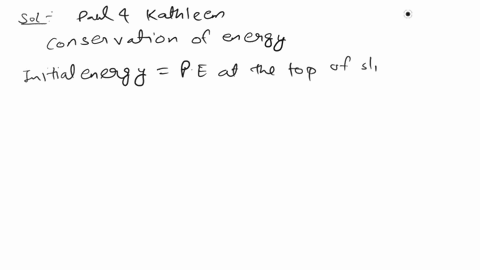 Sol:- Paul & Kathleen
Conservation of energy
Initial energy = P.E at the top of sl